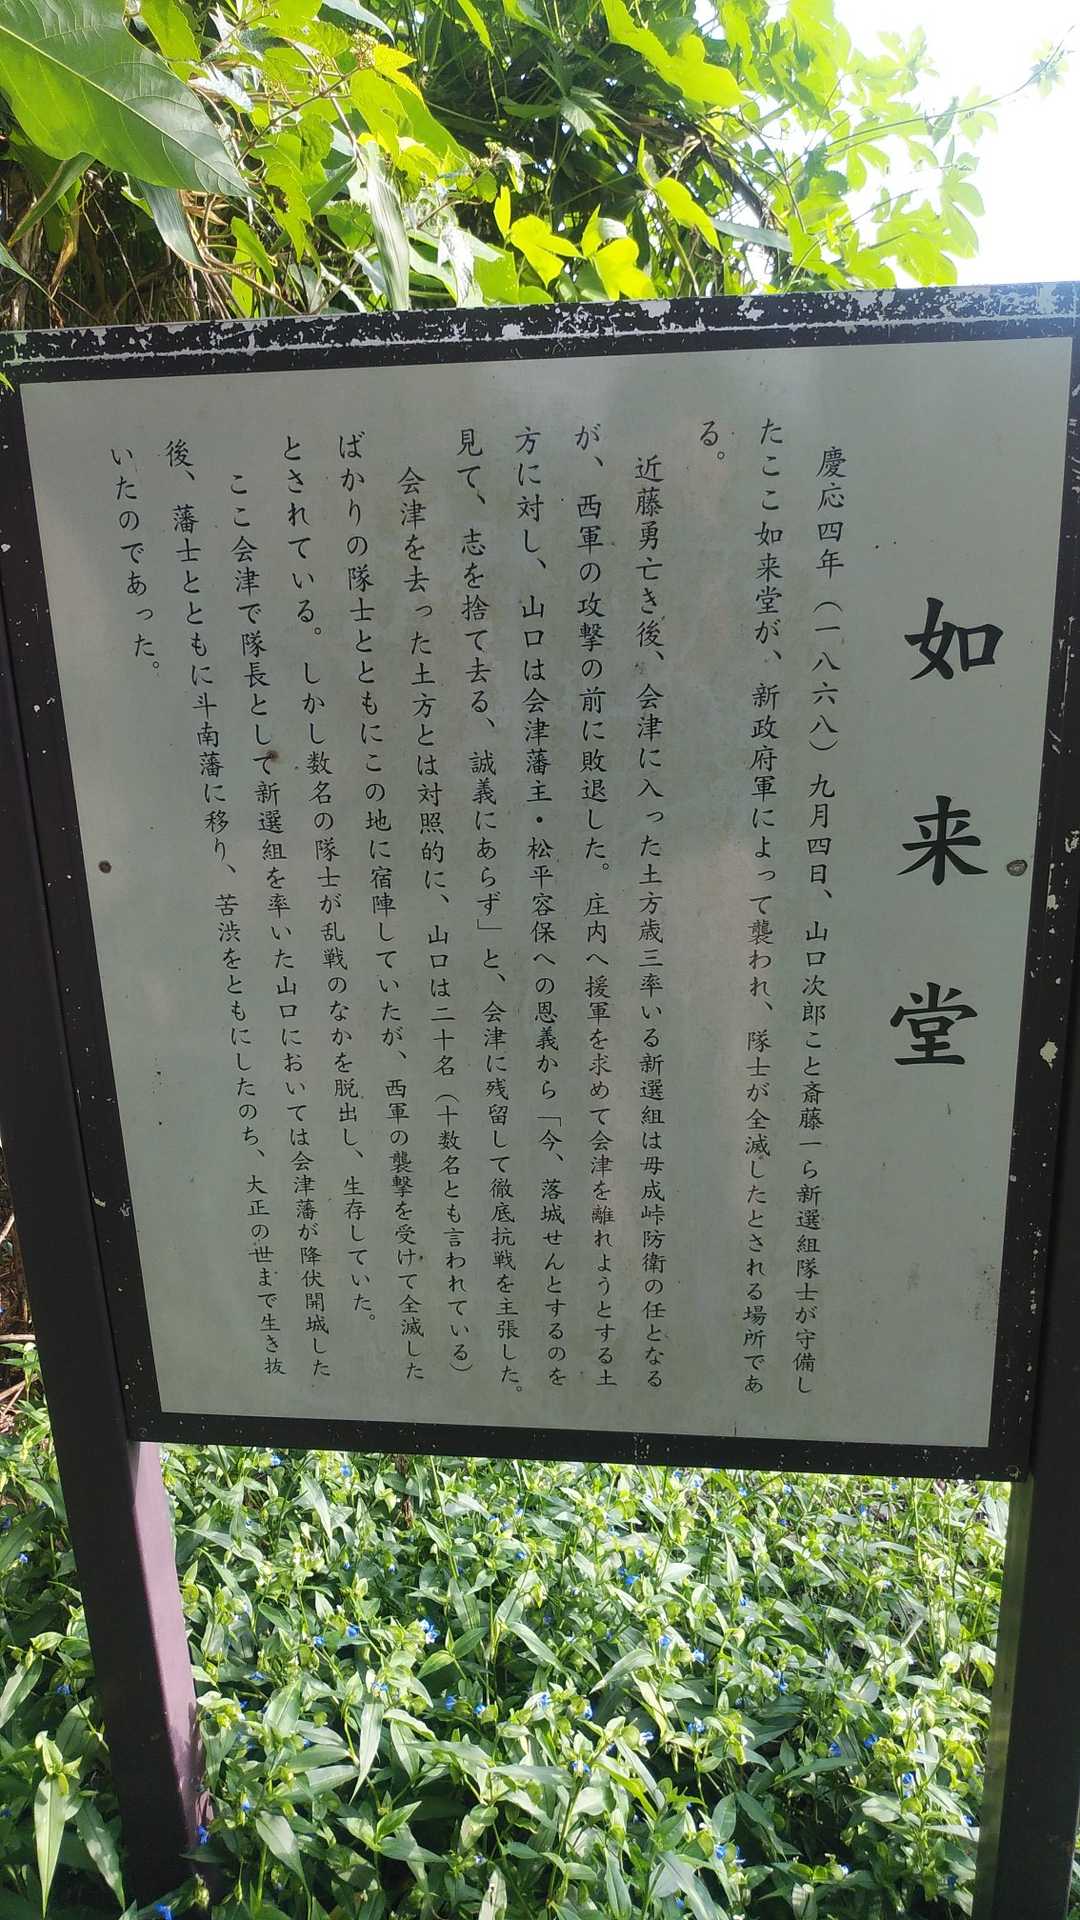 如来堂
慶応四年（一八六八）九月四日、山口次郎こと斎藤一ら新選組隊士が守備し
たここ如来堂が、新政府軍によって襲われ、隊士が全滅したとされる場所であ
る。
近藤勇亡き後、会津に入った土方歳三率いる新選組は母成峠防衛の任となる
が、西軍の攻撃の前に敗退した。庄内へ援軍を求めて会津を離れようとする土
方に対し、山口は会津藩主・松平容保への恩義から「今、落城せんとするのを
見て、志を捨て去る、誠義にあらず」と、会津に残留して徹底抗戦を主張した。
会津を去った土方とは対照的に、山口は二十名（十数名とも言われている）
ばかりの隊士とともにこの地に宿陣していたが、西軍の襲撃を受けて全滅した
とされている。しかし数名の隊士が乱戦のなかを脱出し、生存していた。
ここ会津で隊長として新選組を率いた山口においては会津藩が降伏開城した
後、藩士とともに斗南藩に移り、苦渋をともにしたのち、大正の世まで生き抜
いたのであった。